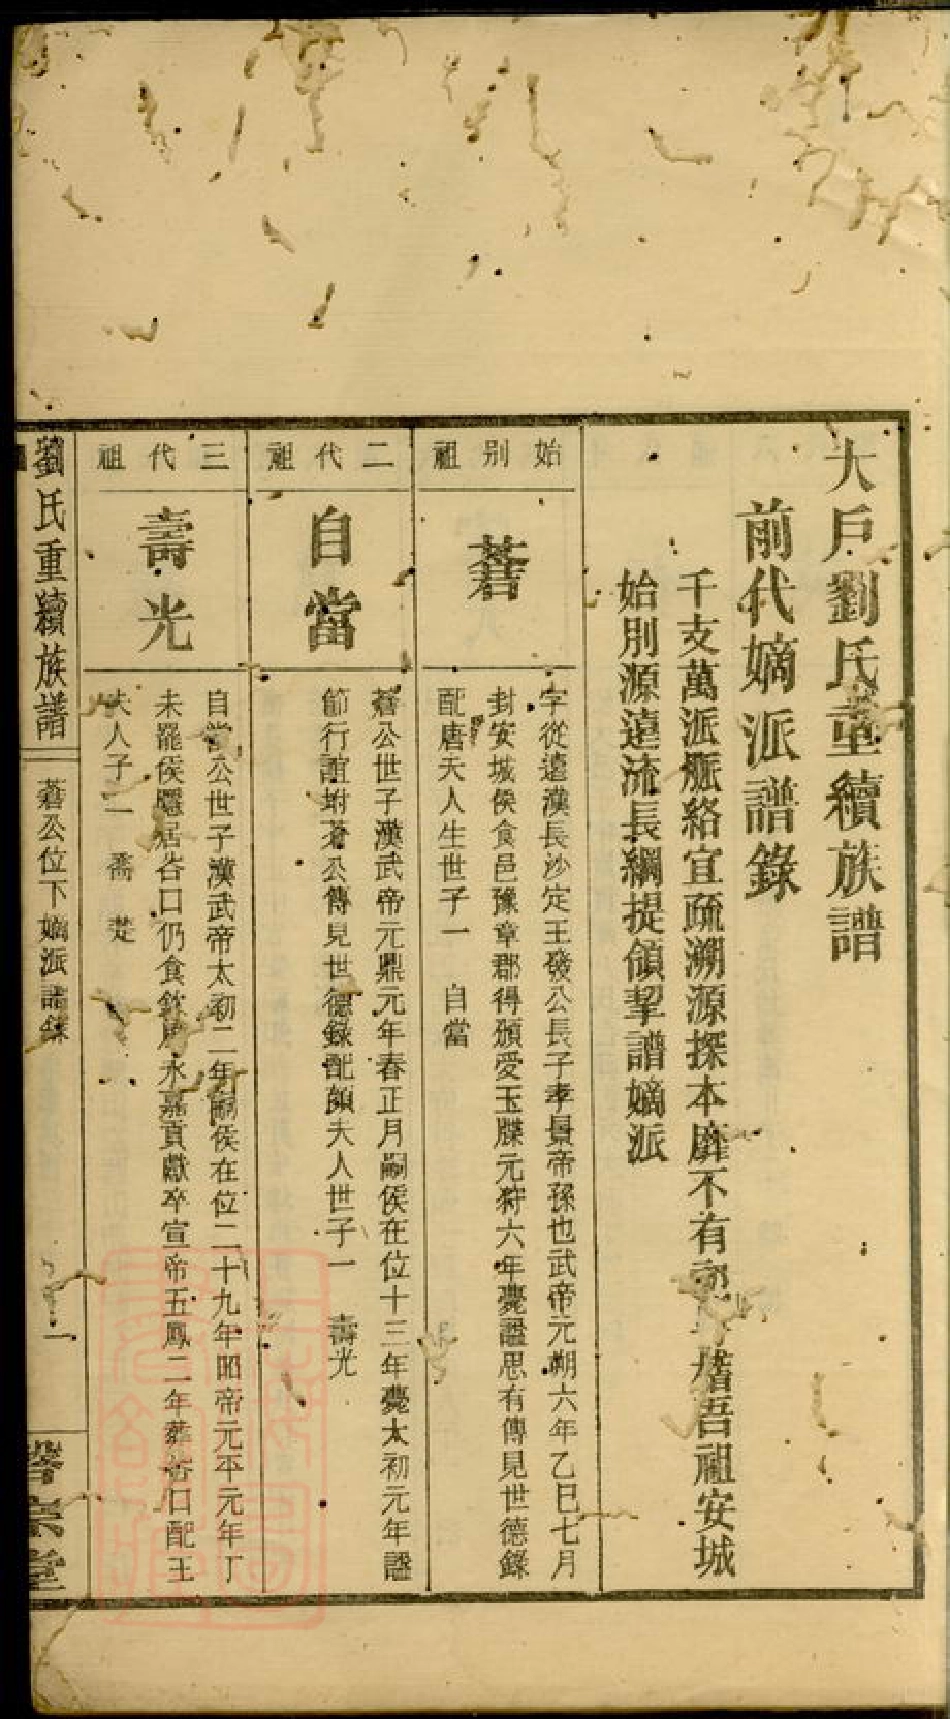 大戶劉氏重續族譜
前代嫡派譜錄
千支萬派脈絡宜疏溯源探本靡不有 稽吾祖安城
始別源遠流長綱提領挈譜嫡派
始別祖
蒼
字從遠漢長沙定王發公長子孝景帝孫也武帝元朔六年乙巳七月
封安城侯食邑豫章郡得頒受玉牒元狩六年薨謚思有傳見世德錄
配唐夫人生世子一 自當
二代祖
自當
蒼公世子漢武帝元鼎元年春正月嗣侯在位十三年薨太初元年謚
節行誼坿蒼公傳見世德錄配顏夫人世子一 壽光
三代祖
壽光
自當公世子漢武帝太初二年嗣侯在位二十九年昭帝元平元年丁
未罷侯隱居谷口仍食 永嘉貢獻卒宣帝五鳳二年葬谷口配王
夫人子二 喬 楚
劉氏重續族譜
蒼公位下嫡派譜錄
一